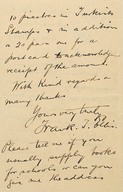 10 piastres in Turkish
Stamps & in addition
a 20 para one for a
postcard to acknowledge
receipt of the amount.
With kind regards &
many thanks
Yours very truly
Frank. T. Ellis.
Please tell me if you
usually supply books
for schools or can you
give me the address